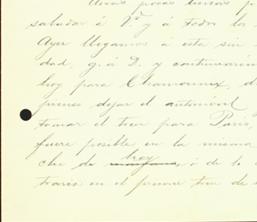 Unas pocas líneas p
saludar á V. y á todos los
Ayer llegamos á esta sin
dad, g. á D. y continuaremos
hoy para Chamounix, d
pienso dejar el automovil
tomar el tren para Paris,
fuere posible en la misma
che de hoy ó de
en el primer tren de